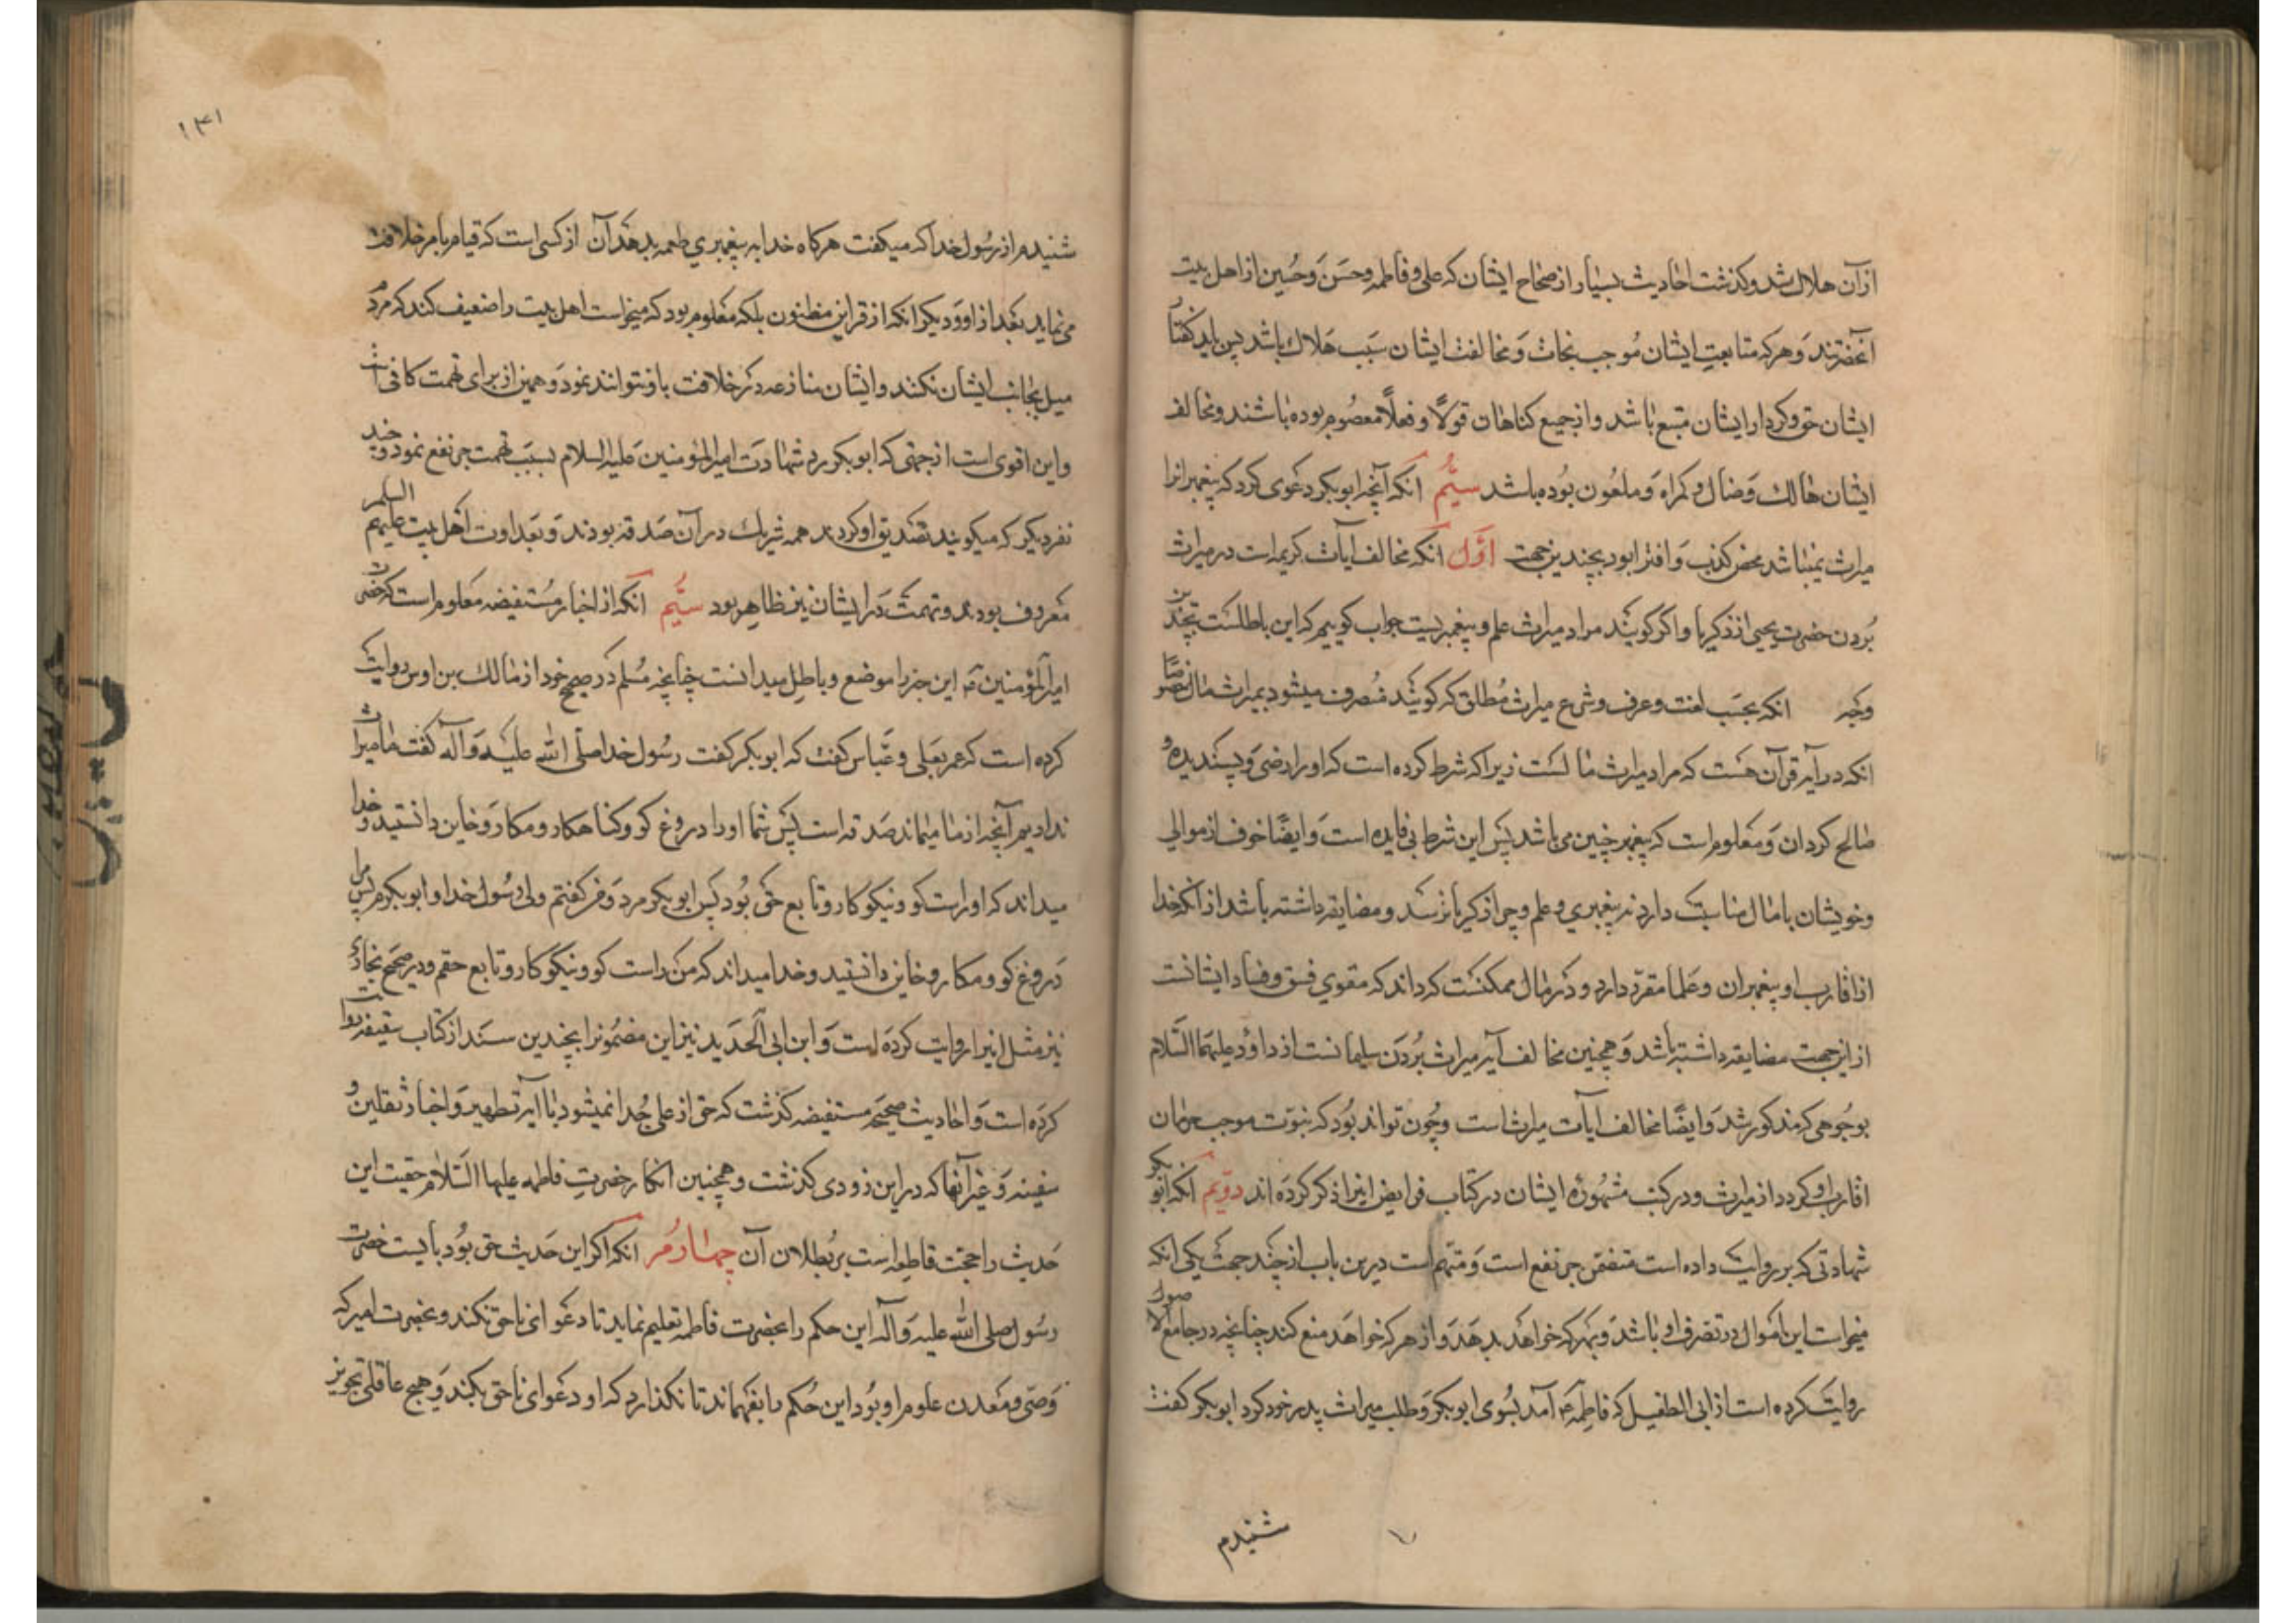 ازان هلاک شد و کذشت احادیث بسیار از صحاح ایشان که علی و فاطمه و حسن و حسین از اهل بیت
آنحضرتند و هرکه متابعت ایشان موجب نجات و مخالفت ایشان سبب هلاک باشد پس باید گفتار
ایشان حق و کردار ایشان متبع باشد و از جمیع کناهان قولاً و فعلاً معصوم بوده باشند و مخالف
ایشان هالک و ضال و کمراه و ملعون بوده باشد سیّم آنکه آنچه ابوبکر دعوی کرد که پیغمبرانرا
میراث نمیباشد محض کذب و افترا بود بچندین جهت اوّل آنکه مخالف آیات کریمه است در میراث
بردن حضرت یحیی از زکریا و اکر کویند مراد میراث علم و پیغمبریست جواب کوییم که این باطلست بچندین
وجه انکه بحسب لغت و عرف و شرع میراث مطلق که کویند منصرف میشود بمیراث مال
انکه در آیه قرآن هست که مراد میراث مالست زیرا که شرط کرده است که او را رضی و پسندیده و
صالح کردان و معلوم است که پیغمبر چنین می باشد پس این شرط بی فایده است و ایضًا خوف از موالی
و خویشان با مال مناسبت دارد نه پیغمبری و علم و چرا زکریا ترسد و مضایقه داشته باشد از آنکه خدا
از اقارب او پیغمبران و علما مقرّر دارد و در مال ممکنست که داند که مقوی فسق و فساد ایشانست
از این جهت مضایقه داشته باشد و همچنین مخالف آیه میراث بردن سلیمانست از داود علیهما السّلام
بوجوهی که مذکور شد و ایضًا مخالف آیات میراث است و چون تواند بود که نبوّت موجب حرمان
اقارب او کردد از میراث و در کتب مشهوره ایشان در کتاب فرایض اینرا ذکر کرده اند دوّیم آنکه ابوبکر
شهادتی که بر روایت داده است متضمّن جرّ نفع است و متّهم است درین باب از چند جهت یکی انکه
میخواست این اموال در تصرف او باشد و بهرکه خواهد بدهد و از هرکه خواهد منع کند چنانچه در جامع الاصول
روایت کرده است از ابی الطفیل که فاطمه ع آمد بسوی ابوبکر و طلب میراث پدر خود کرد ابوبکر کفت
شنیدم
۱۴۱
شنیدم از رسول خدا که میکفت هرکاه خدا به پیغمبری طعمه بدهد آن از کسی است که قیام بامر خلافت
می نماید بعد از او و دیکر انکه از قراین مظنون بلکه معلوم بود که میخواست اهل بیت را ضعیف کند که مردم
میل بجانب ایشان نکنند و ایشان منازعه در خلافت با او نتوانند نمود و همین از برای تهمت کافی است
و این اقوی است از جهتی که ابوبکر رد شهادت امیرالمؤمنین علیه السلام بسبب تهمت جر نفع نمود و چند
نفر دیکر که میکویند تصدیق او کردند همه شریک در آن صدقه بودند و بعداوت اهل بیت علیهم السلم
معروف بودند و تهمت در ایشان نیز ظاهر بود سیّم انکه از اخبار مستفیضه معلوم است که حضرت
امیرالمؤمنین ع این خبر را موضع و باطل میدانست چنانچه مسلم در صحیح خود از مالک بن اوس روایت
کرده است که عمر بعلی و عباس کفت که ابوبکر کفت رسول خدا صلی الله علیه و آله کفت ما میراث
نداریم آنچه از ما میماند صدقه است پس شما او را دروغ کو و کناهکار و مکار و خاین دانستید و خدا
میداند که او راست کو و نیکوکار و تابع حق بود پس ابوبکر مرد و من کفتم ولی رسول خدا و ابوبکرم پس مرا
دروغ کو و مکار و خاین دانستید و خدا میداند که من راست کو و نیکوکار و تابع حقم و در صحیح بخاری
نیز مثل اینرا روایت کرده است و ابن ابی الحدید نیز این مضمونرا بچندین سند از کتاب سقیفه روایت
کرده است و احادیث صحیحه مستفیضه کذشت که حق از علی جدا نمیشود با آیه تطهیر و اخبار ثقلین و
سفینه و غیر آنها که در این زودی کذشت و همچنین انکار حضرت فاطمه علیها السّلام حقیت این
حدیث را حجت قاطعه است بر بطلان آن چهارم انکه اکر این حدیث حق بود بایست حضرت
رسول صلی الله علیه و آله این حکم را بحضرت فاطمه تعلیم نماید تا دعوای ناحق نکند و بحضرت امیر که
وصی و معدن علوم او بود این حکم را بفهماند تا نکذارد که او دعوای ناحق بکند و هیچ عاقلی تجویز